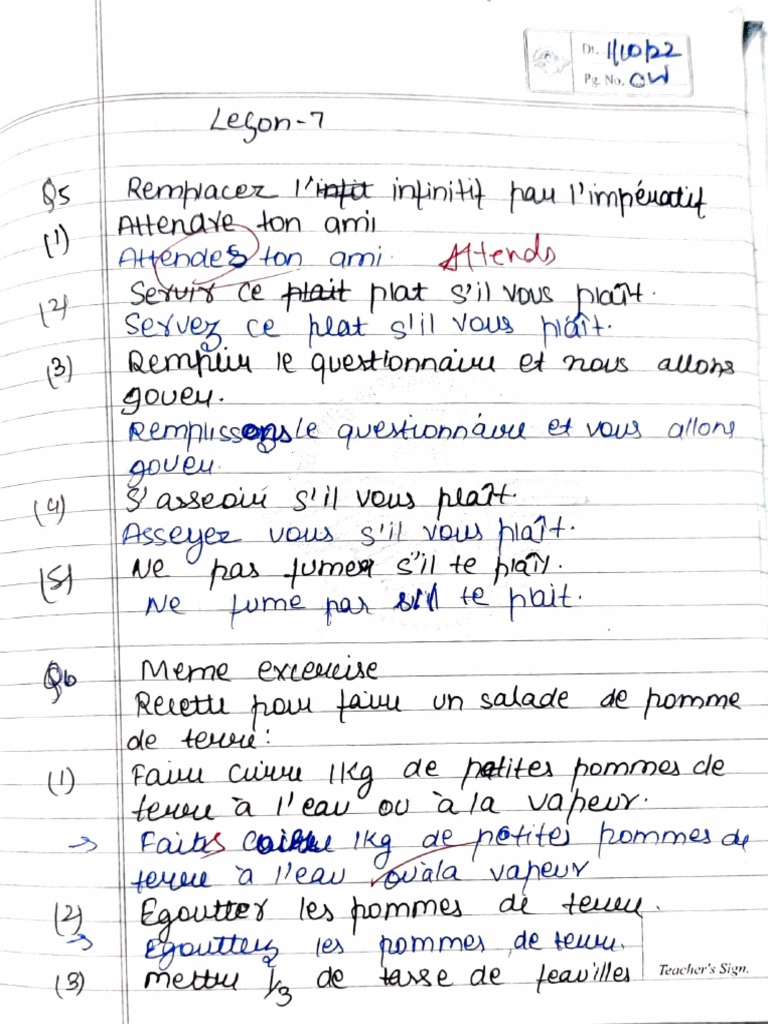 Dt. 1/10/22
Pg. No. OW
Leçon-7
Q5 Remplacez l'infinitif par l'impératif
(1) Attendre ton ami
Attendes ton ami. Attends
(2) Servir ce plait plat s'il vous plaît.
Servez ce plat s'il vous plaît.
(3) Remplir le questionnaire et nous allons
gouer.
Remplissons le questionnaire et vous allons
gouer.
(4) S'asseoir s'il vous plaît.
Asseyez vous s'il vous plaît.
(5) Ne pas fumer s'il te plaît.
Ne fume pas s'il te plait.
Q6 Meme excercise
Recette pour faire un salade de pomme
de terre:
(1) Faire cuire 1kg de petites pommes de
terre à l'eau ou à la vapeur.
→ Faites cuire 1kg de petites pommes de
terre à l'eau ou à la vapeur
(2) Egoutter les pommes de terre.
→ Egouttez les pommes de terre.
(3) Mettre 1/3 de tasse de feavilles
Teacher's Sign.